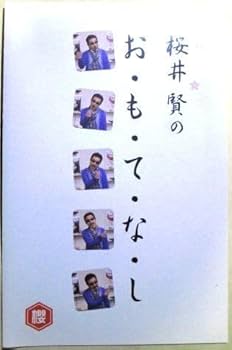 桜井賢の
お・も・て・な・し
櫻